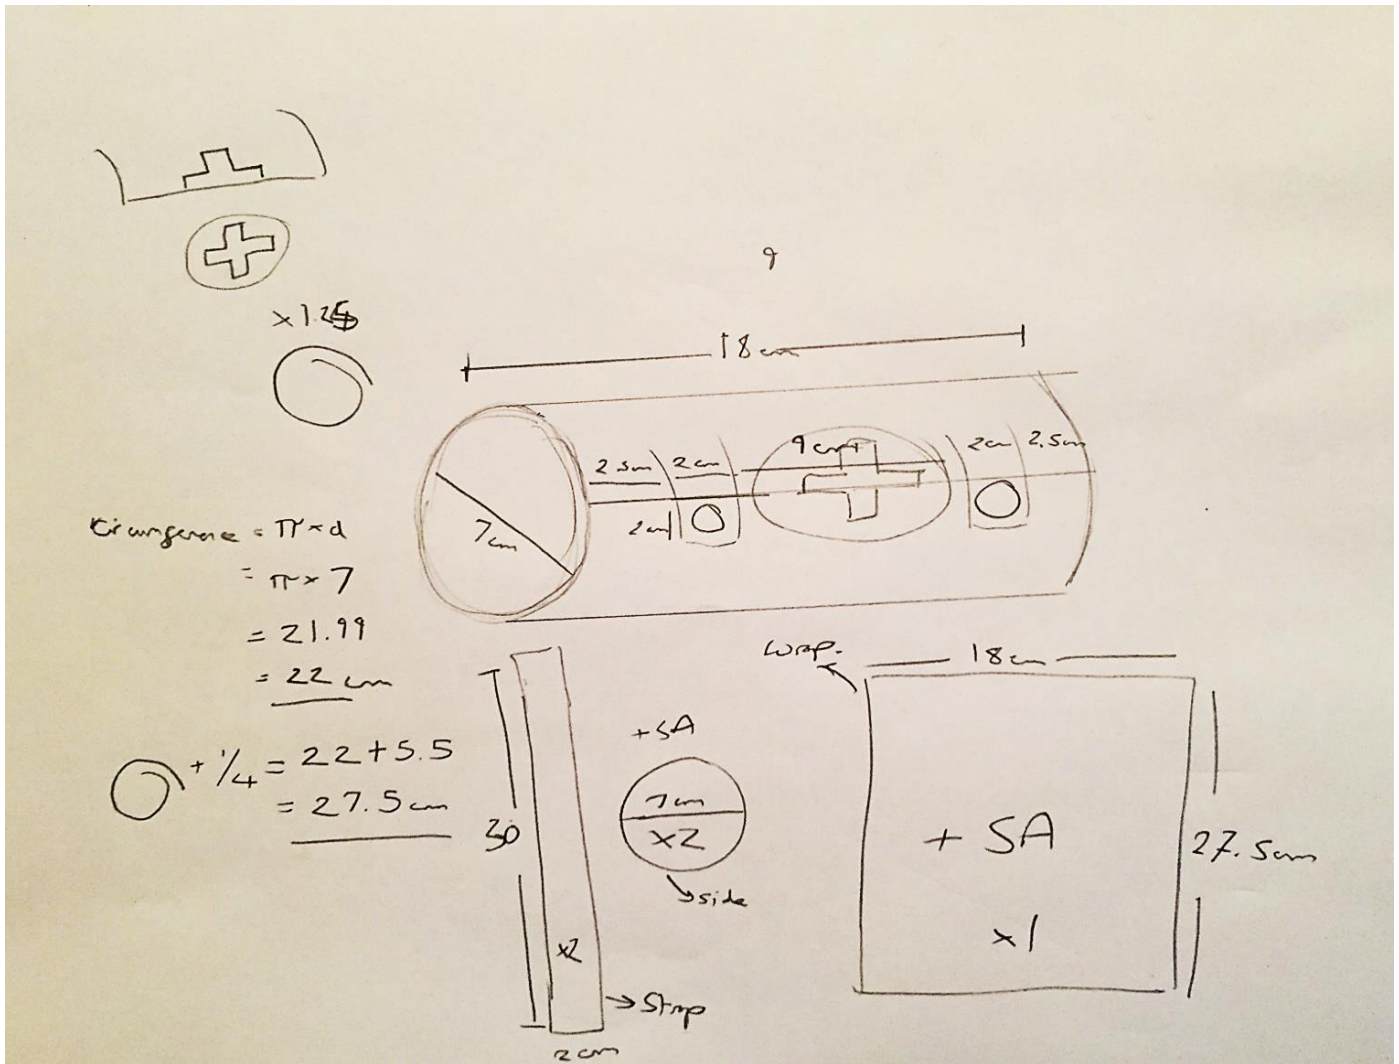 9
x1.25
18cm
2.5cm
2cm
9cm
2cm
2.5cm
2cm
7cm
= π×d
= π×7
= 21.99
= 22cm
+ 1/4 = 22+5.5
= 27.5cm
30
x2
→ Strap
2cm
+SA
7cm
x2
side
wrap.
18cm
+ SA
x1
27.5cm